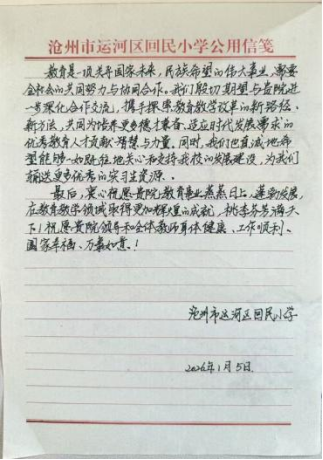 沧州市运河区回民小学公用信笺
教育是一项关乎国家未来,民族希望的伟大事业,需要
全社会的共同努力与协同合作。我们殷切期望与贵院进
一步深化合作交流,携手探索教育教学改革的新路径、
新方法,共同为培养更多德才兼备、适应时代发展需求的
优秀教育人才贡献智慧与力量。同时,我们也真诚地希
望能够一如既往地关心和支持我校的发展建设,为我们
输送更多优秀的实习生资源。
最后,衷心祝愿贵院教育事业蒸蒸日上,蓬勃发展,
在教育教学领域取得更加辉煌的成就,桃李芬芳满天
下!祝愿贵院领导和全体教师身体健康、工作顺利、
阖家幸福、万事如意!
沧州市运河区回民小学
2026年1月5日.